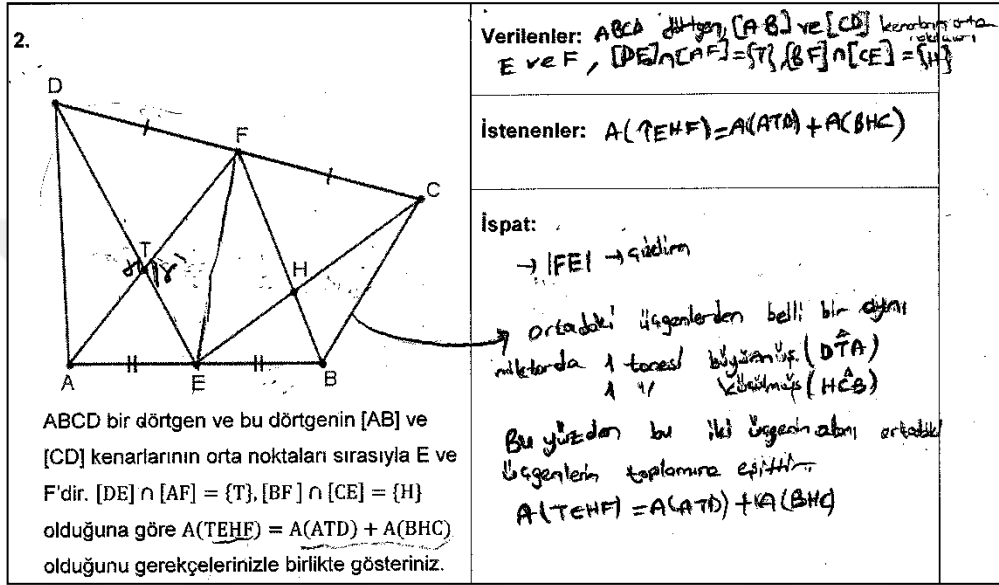 2.
D
F
C
T
H
A
E
B
ABCD bir dörtgen ve bu dörtgenin [AB] ve
[CD] kenarlarının orta noktaları sırasıyla E ve
F'dir. [DE] ∩ [AF] = {T}, [BF] ∩ [CE] = {H}
olduğuna göre A(TEHF) = A(ATD) + A(BHC)
olduğunu gerekçelerinizle birlikte gösteriniz.
Verilenler: ABCD dörtgen, [AB] ve [CD] kenarların orta
noktaları
E ve F, [DE]∩[AF]={T}, [BF]∩[CE]={H}
İstenenler: A(TEHF)=A(ATD)+A(BHC)
İspat:
→ |FE| → çizdim
ortadaki üçgenlerden belli bir aynı
miktarda 1 tanesi büyümüş (DTA)
1 " küçülmüş (HCB)
Bu yüzden bu iki üçgenin alanı ortadaki
üçgenlerin toplamına eşittir.
A(TEHF) = A(ATD) + A(BHC)